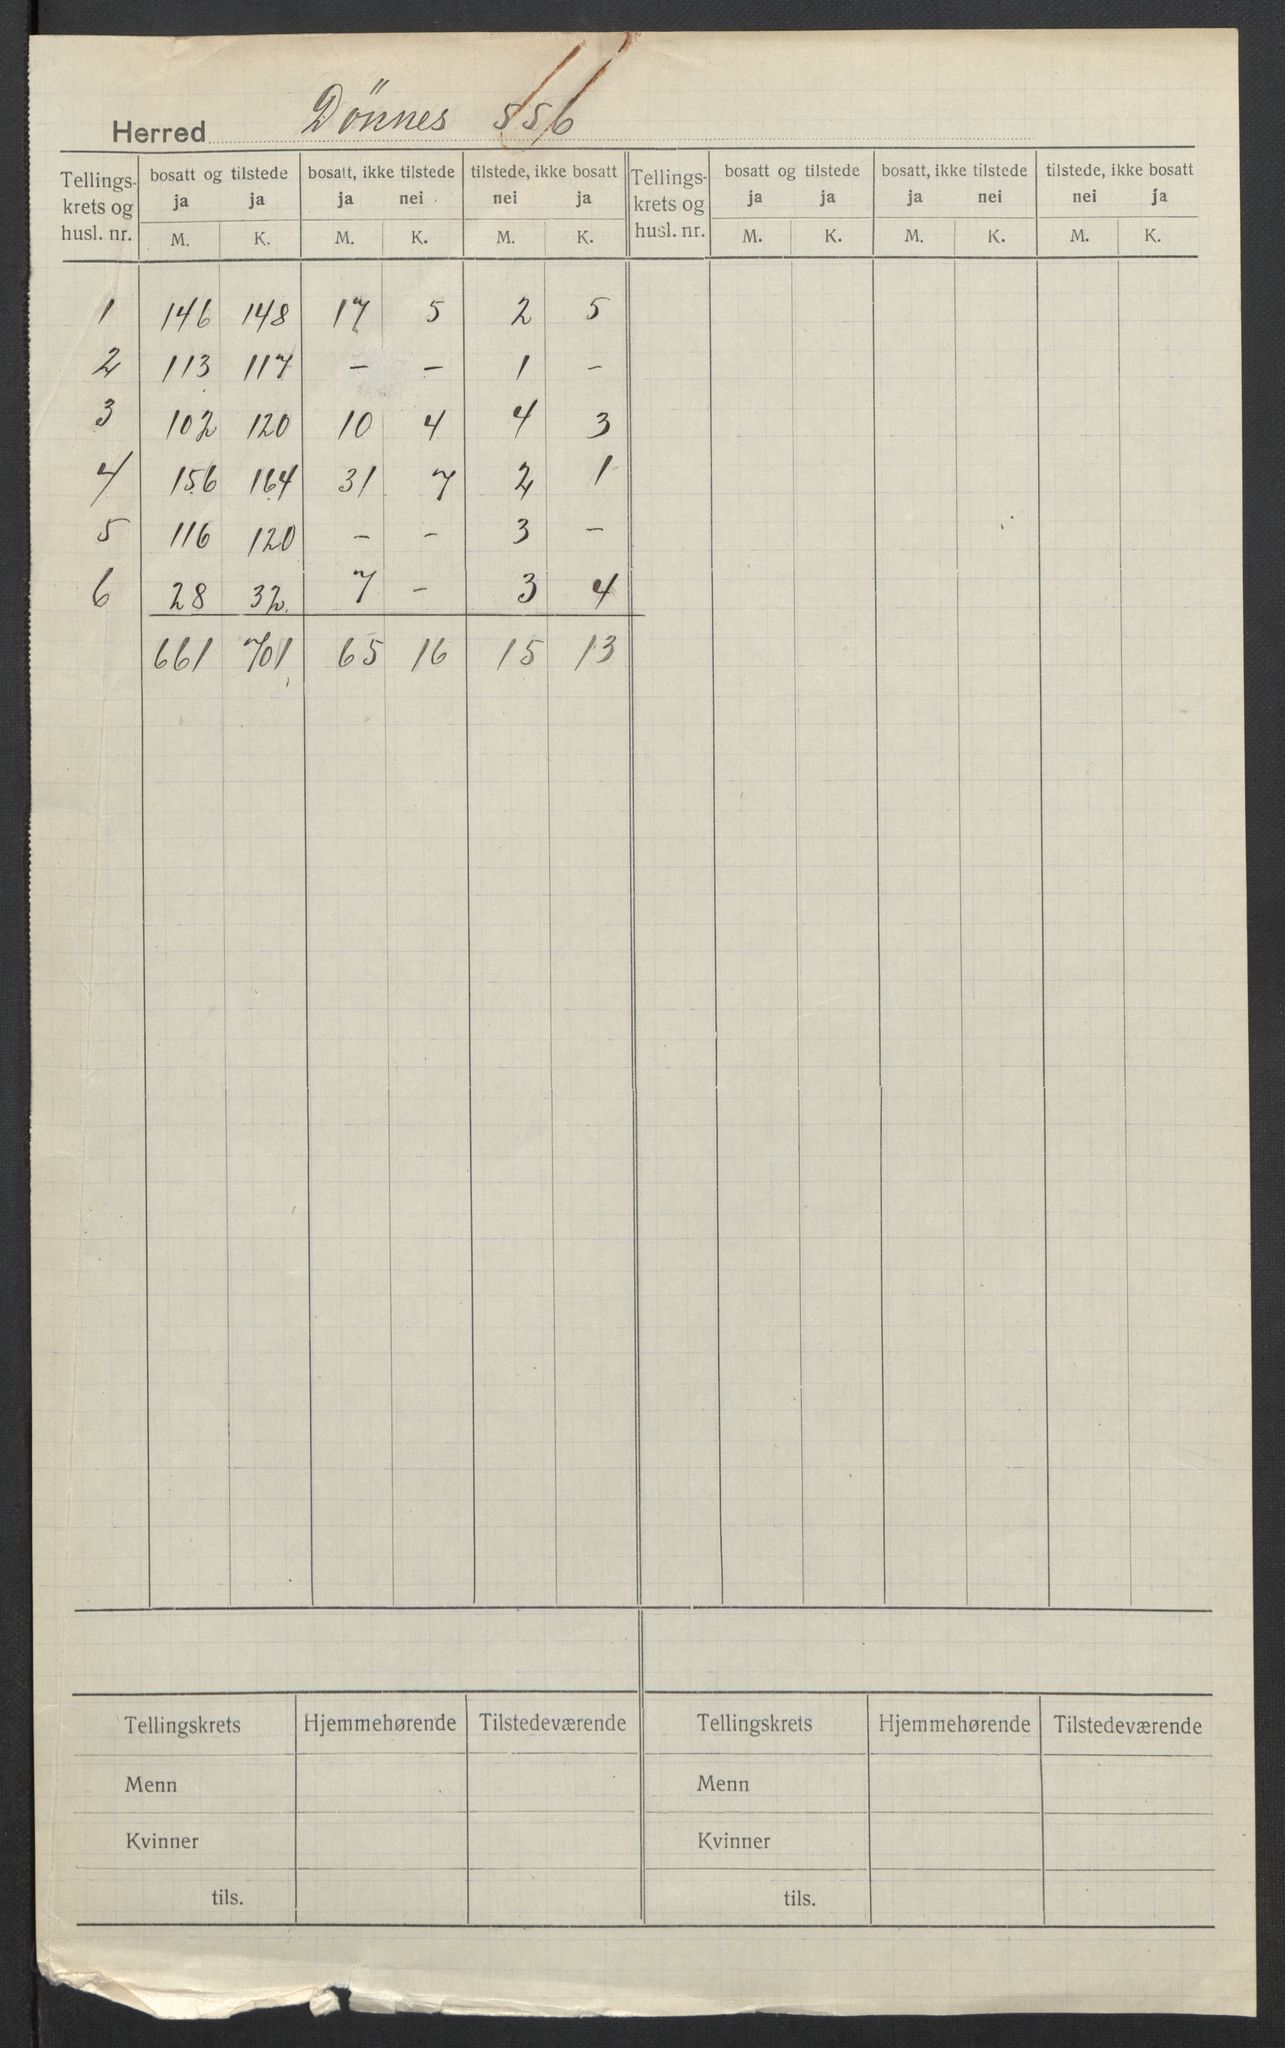 Herred Dönnes 556
Tellings- krets og husl. nr. bosatt og tilstede bosatt, ikke tilstede tilstede, ikke bosatt Tellings- krets og husl. nr. bosatt og tilstede bosatt, ikke tilstede tilstede, ikke bosatt
ja ja ja nei nei ja ja ja ja nei nei ja
M. K. M. K. M. K. M. K. M. K. M. K.
1 146 148 17 5 2 5
2 113 117 – – 1 –
3 102 120 10 4 4 3
4 156 164 31 7 2 1
5 116 120 – – 3 –
6 28 32 7 – 3 4
661 701 65 16 15 13
Tellingskrets Hjemmehørende Tilstedeværende Tellingskrets Hjemmehørende Tilstedeværende
Menn Menn
Kvinner Kvinner
tils. tils.